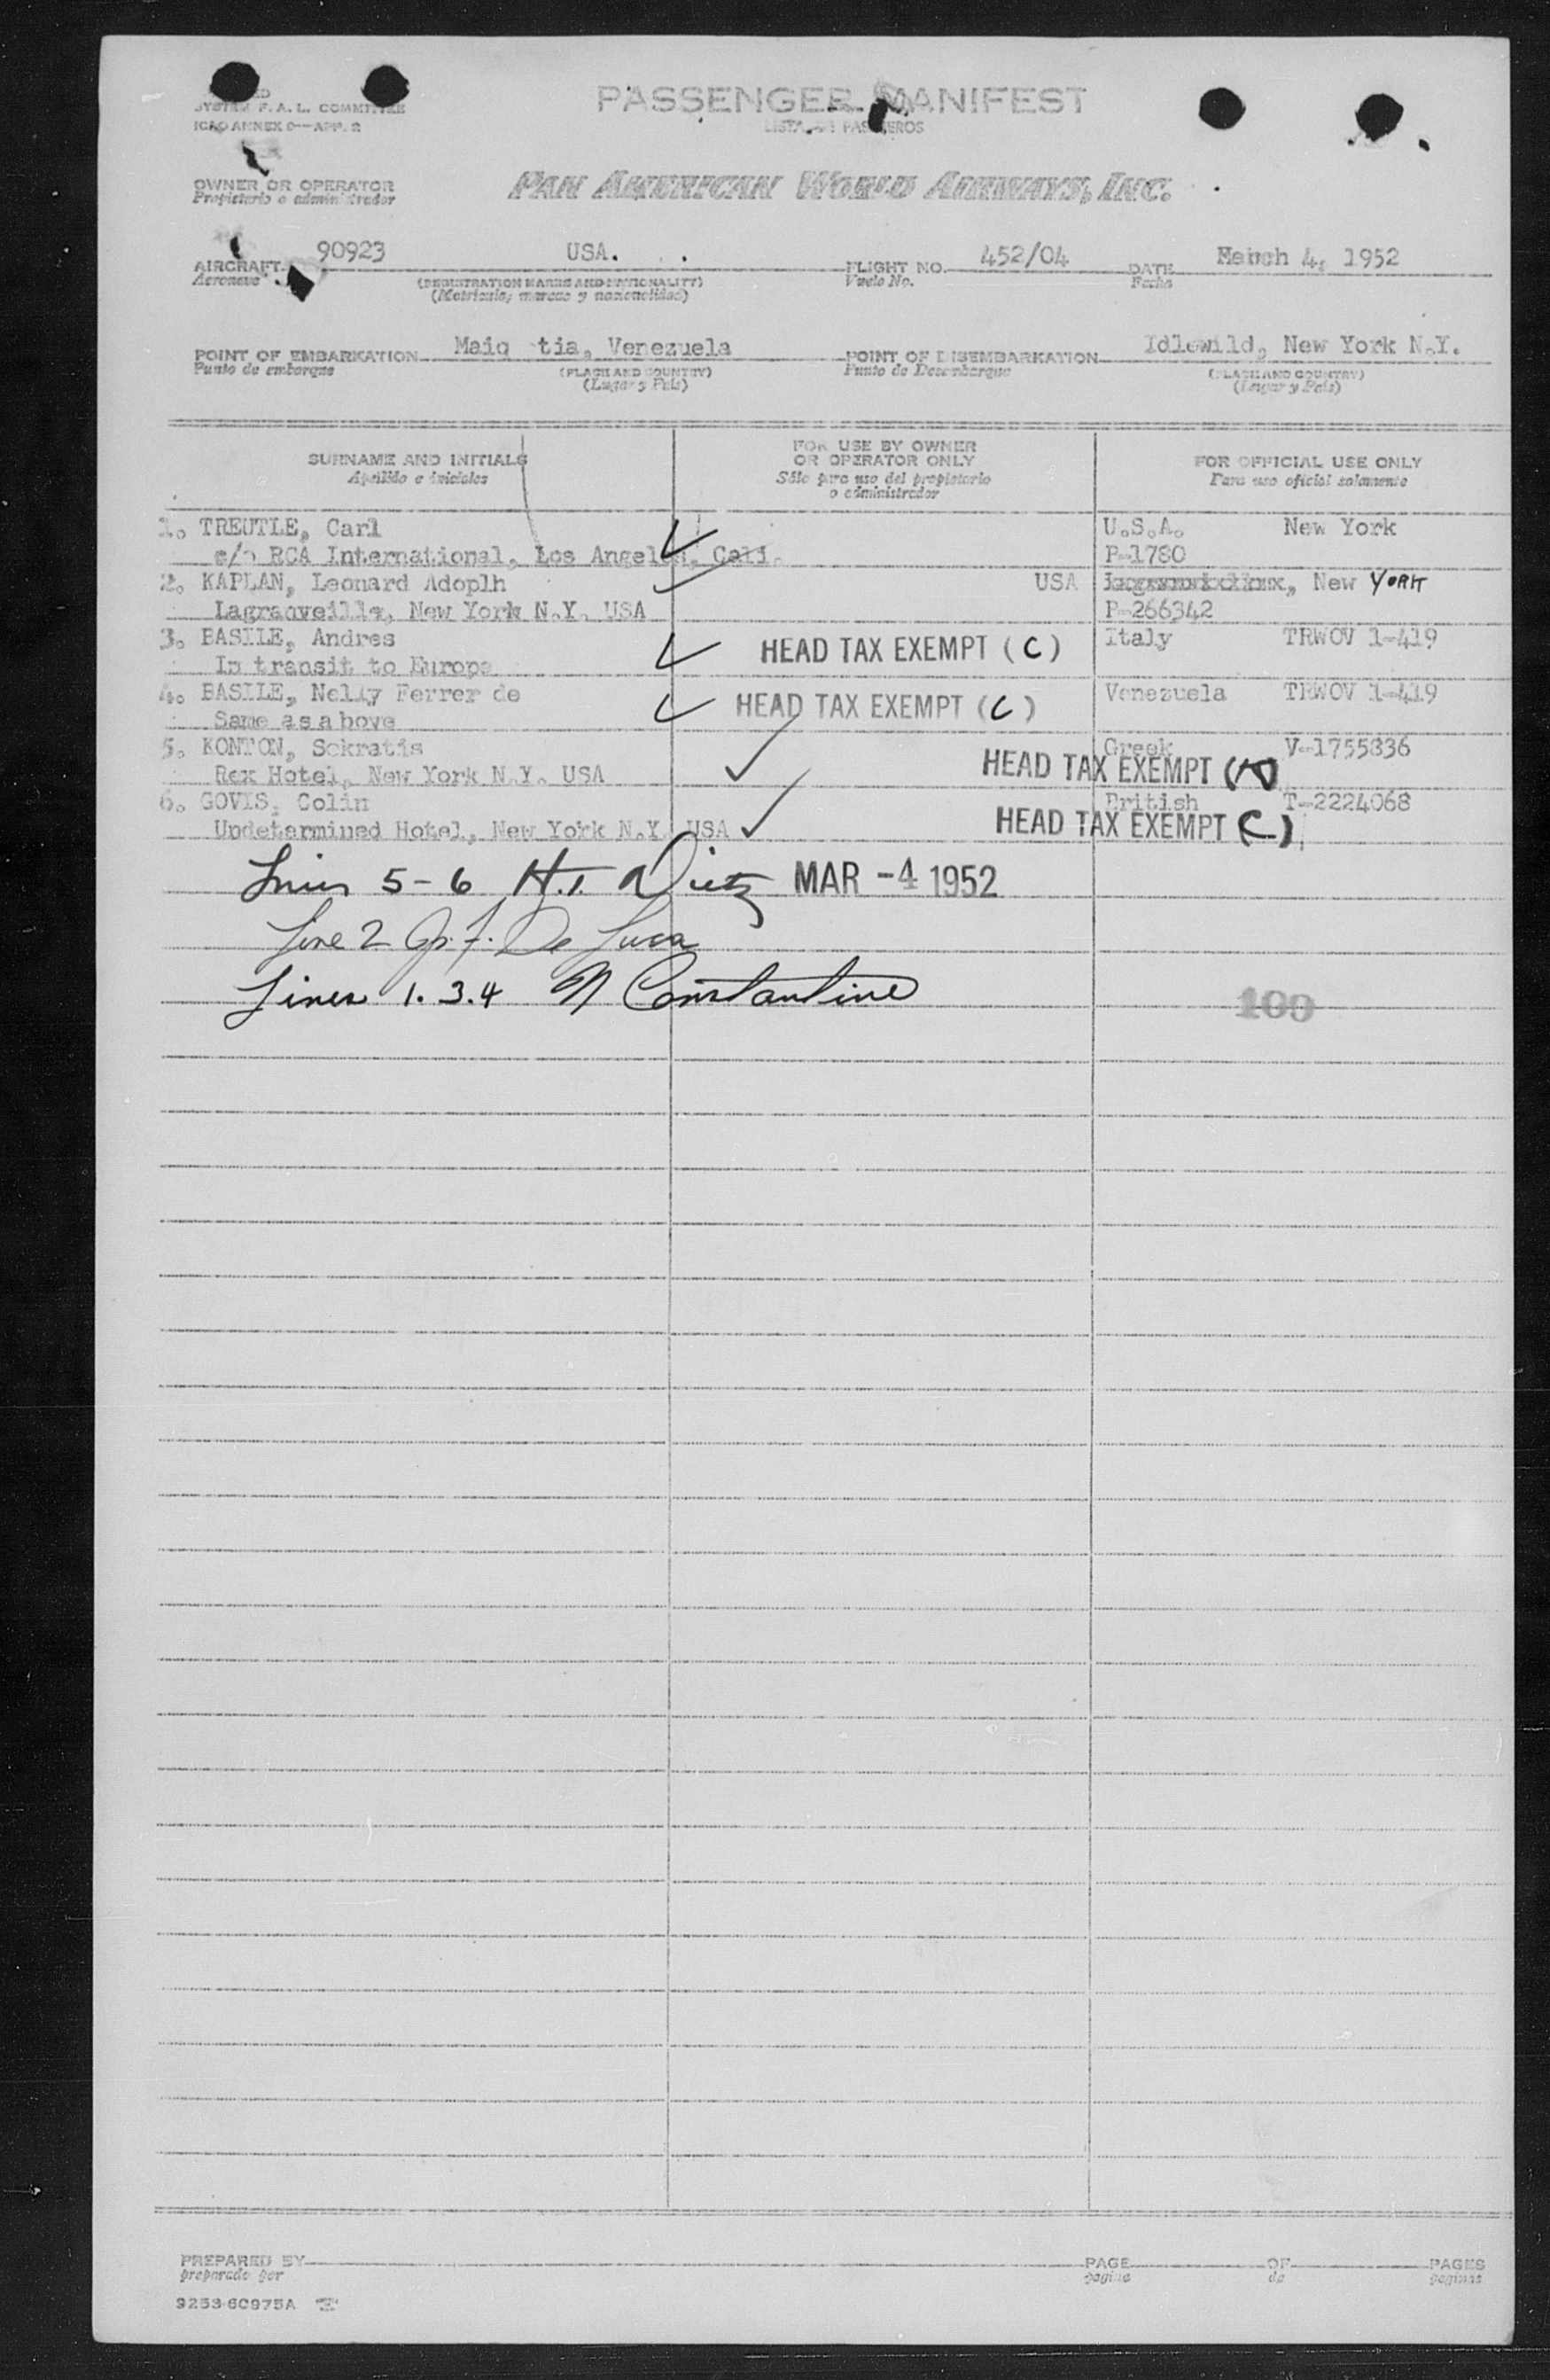 SYSTEM F. A. L. COMMITTEE
ICAO ANNEX 9—APP. 2
PASSENGER MANIFEST
LISTA DE PASAJEROS
OWNER OR OPERATOR
Propietario o administrador
PAN AMERICAN WORLD AIRWAYS, INC.
AIRCRAFT 90923 USA. FLIGHT NO. 452/04 DATE March 4, 1952
Aeronave (REGISTRATION MARKS AND NATIONALITY) Vuelo No. Fecha
(Matricula, marcas y nacionalidad)
POINT OF EMBARKATION Maiq tia, Venezuela POINT OF DISEMBARKATION Idlewild, New York N.Y.
Punto de embarque (PLACE AND COUNTRY) Punto de Desembarque (PLACE AND COUNTRY)
(Lugar y País) (Lugar y País)
SURNAME AND INITIALS
Apellido e iniciales
FOR USE BY OWNER
OR OPERATOR ONLY
Sólo para uso del propietario
o administrador
FOR OFFICIAL USE ONLY
Para uso oficial solamente
1. TREUTLE, Carl U.S.A. New York
c/o RCA International, Los Angeles, Cali. P-1780
2. KAPLAN, Leonard Adoplh USA New YORK
Lagrangveille, New York N.Y. USA P-266342
3. BASILE, Andres HEAD TAX EXEMPT (C) Italy TRWOV 1-419
In transit to Europe
4. BASILE, Nelly Ferrer de HEAD TAX EXEMPT (C) Venezuela TRWOV 1-419
Same as above
5. KONTON, Sokratis Greek V-1755836
Rex Hotel, New York N.Y. USA HEAD TAX EXEMPT
6. GOVIS, Colin British T-2224068
Undetermined Hotel, New York N.Y. USA HEAD TAX EXEMPT (C)
Lines 5-6 H.J. Dietz MAR -4 1952
Line 2 De Luca
Lines 1. 3. 4 N Constantine
100
PREPARED BY PAGE OF PAGES
preparado por pagina de paginas
9253-6C975A "E"